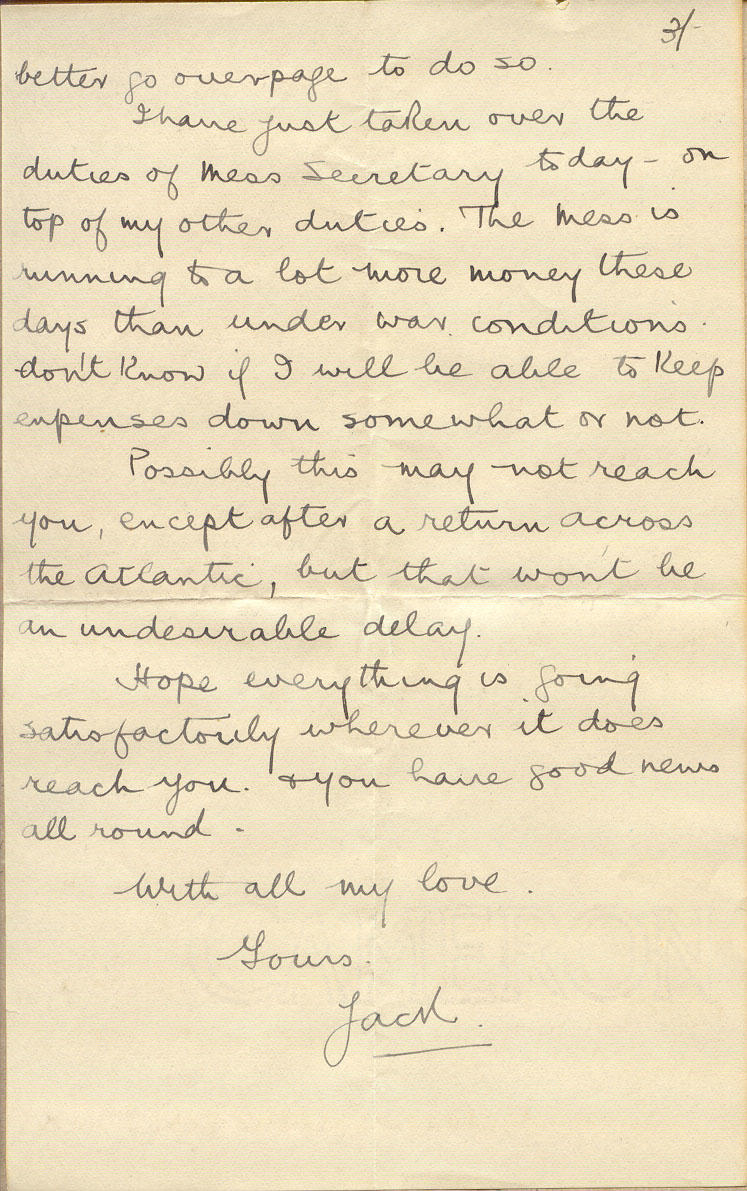 3/-
better go overpage to do so.
I have just taken over the
duties of Mess Secretary today - on
top of my other duties. The Mess is
running to a lot more money these
days than under war conditions.
don't know if I will be able to keep
expenses down somewhat or not.
Possibly this may not reach
you, except after a return across
the Atlantic, but that won't be
an undesirable delay.
Hope everything is going
satisfactorily wherever it does
reach you. & you have good news
all round -
With all my love.
Yours.
Jack.